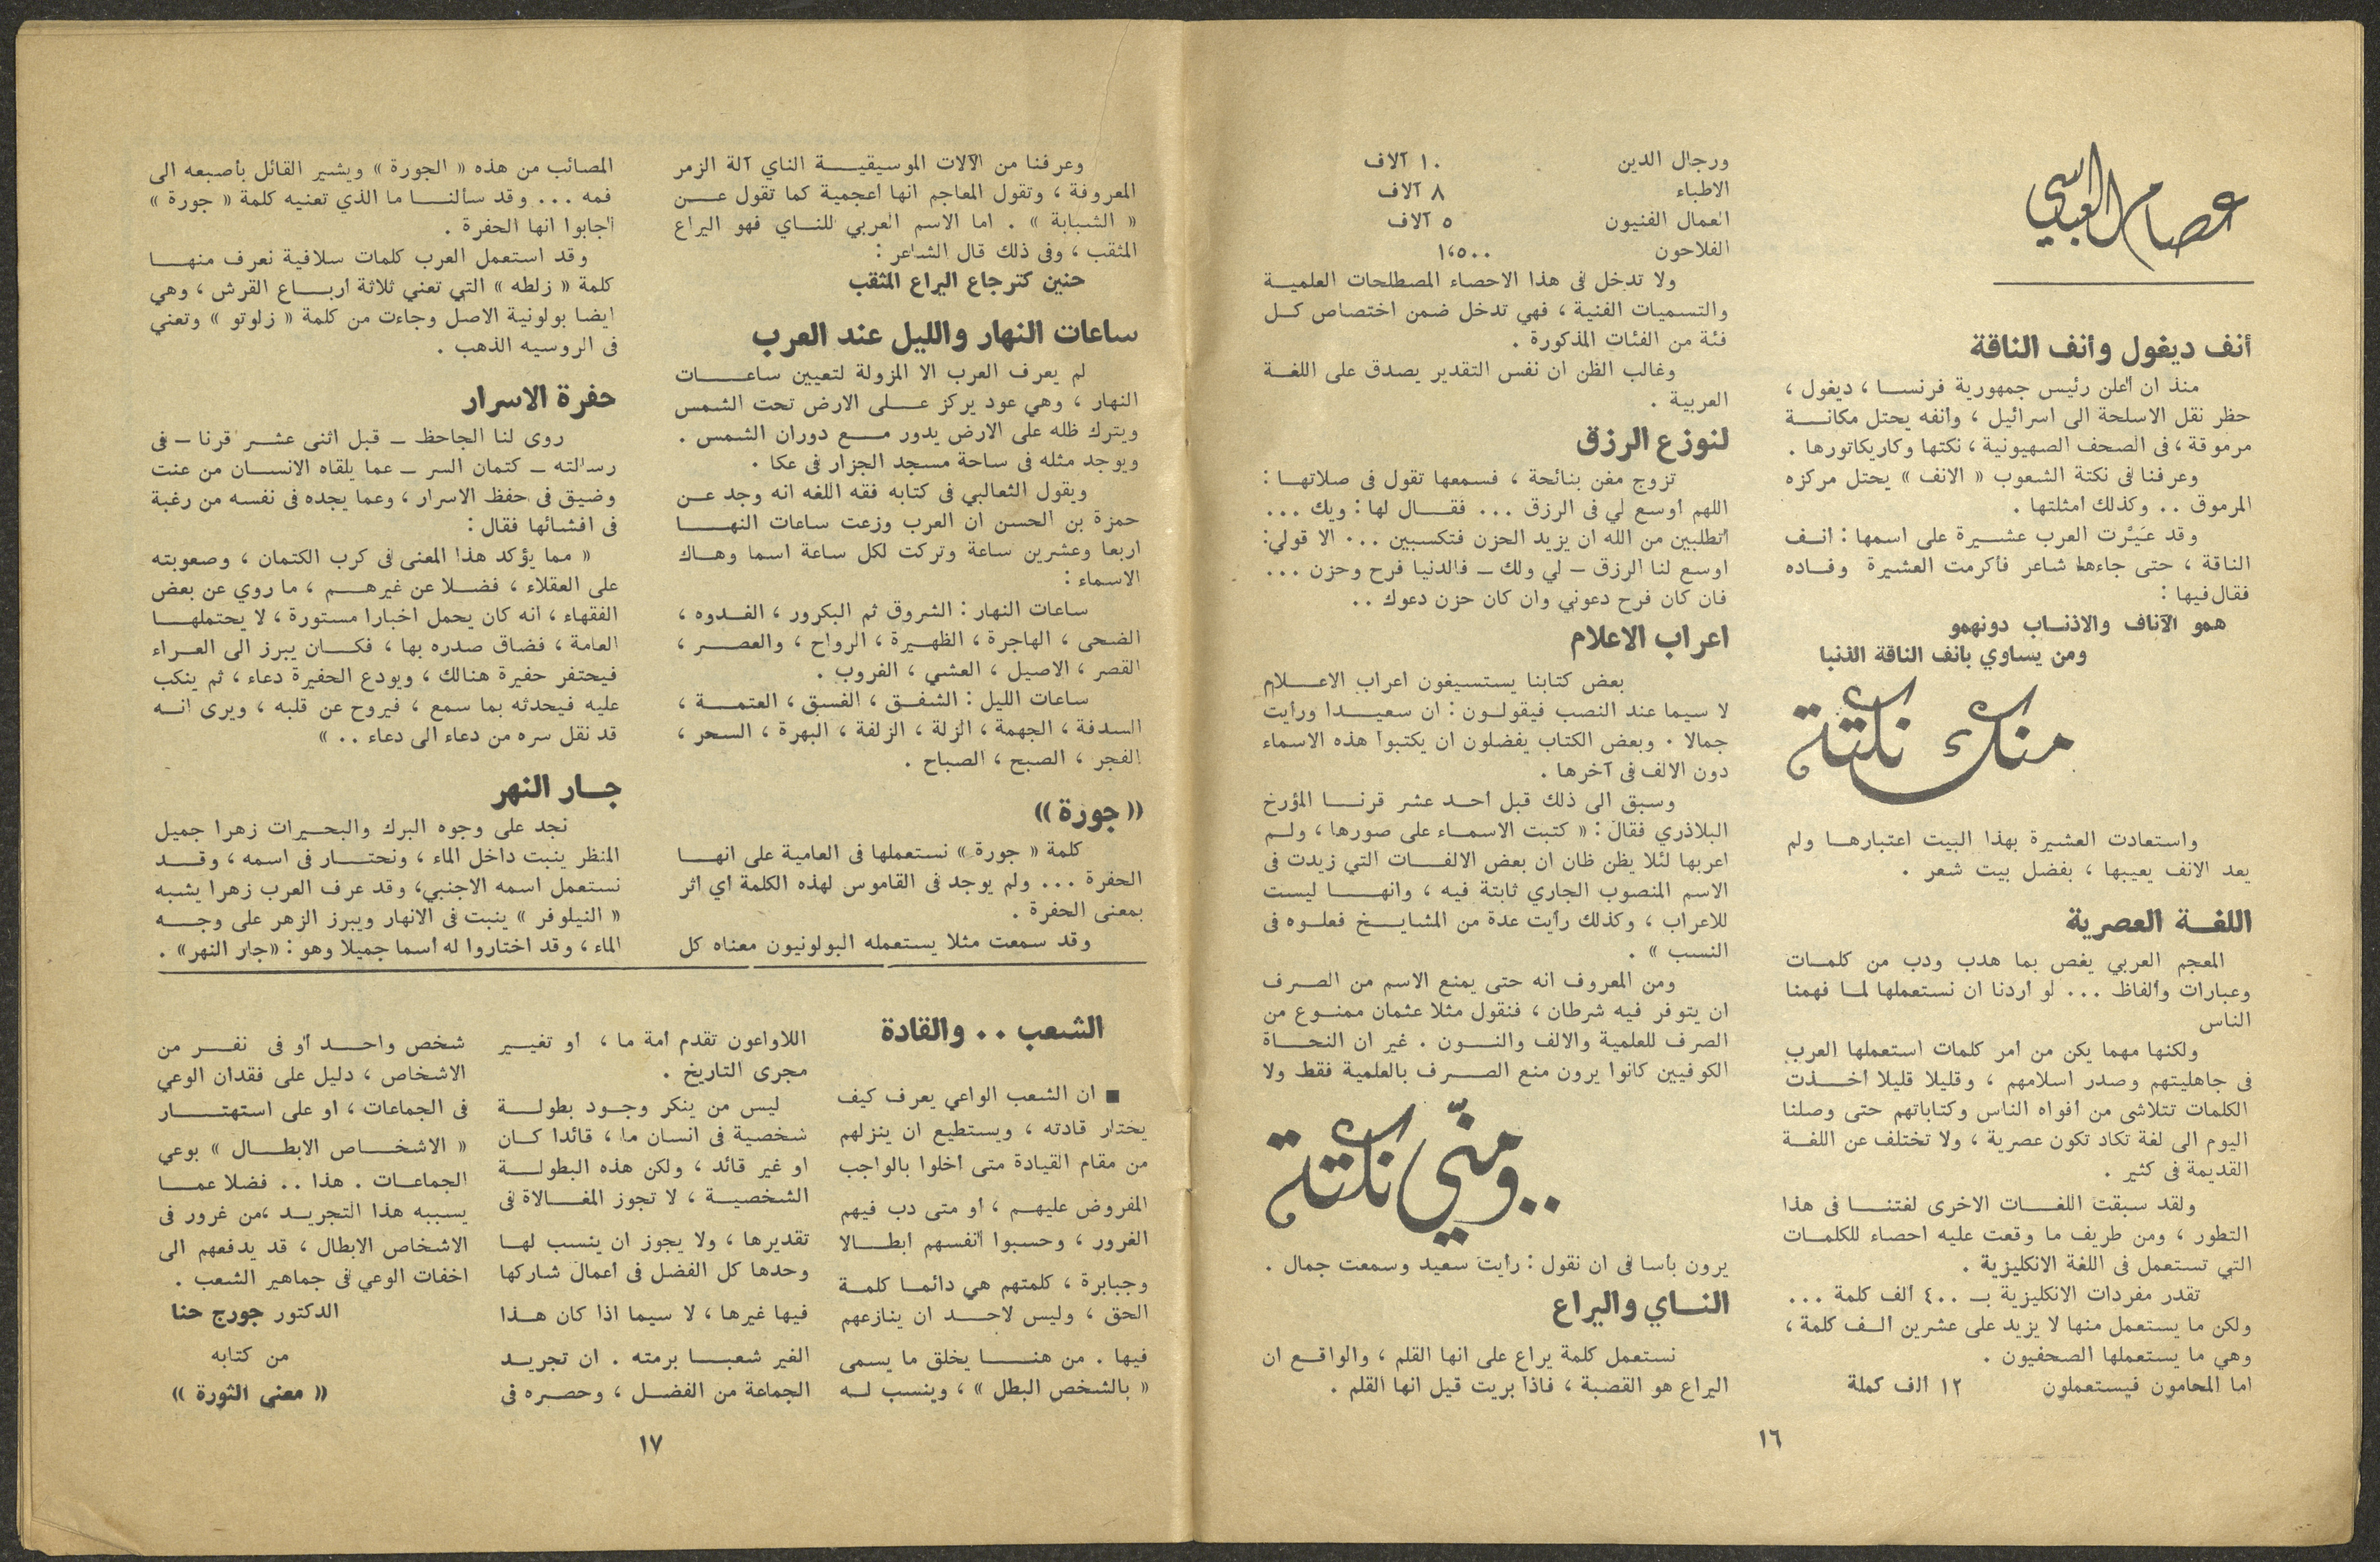 عصام العباسي
أنف ديغول وأنف الناقة
منذ ان أعلن رئيس جمهورية فرنسا ، ديغول ،
حظر نقل الاسلحة الى اسرائيل ، وأنفه يحتل مكانة
مرموقة ، في الصحف الصهيونية ، نكتها وكاريكاتورها .
وعرفنا في نكتة الشعوب « الانف » يحتل مركزه
المرموق .. وكذلك امثلتها .
وقد عَيَّرت العرب عشيرة على اسمها : انف
الناقة ، حتى جاءها شاعر فأكرمت العشيرة وفاده
فقال فيها :
همو الآناف والاذناب دونهمو
ومن يساوي بانف الناقة الذنبا
منك نكتة
واستعادت العشيرة بهذا البيت اعتبارها ولم
يعد الانف يعيبها ، بفضل بيت شعر .
اللغة العصرية
المعجم العربي يغص بما هدب ودب من كلمات
وعبارات وألفاظ ... لو أردنا ان نستعملها لما فهمنا
الناس
ولكنها مهما يكن من امر كلمات استعملها العرب
في جاهليتهم وصدر اسلامهم ، وقليلا قليلا اخذت
الكلمات تتلاشى من أفواه الناس وكتاباتهم حتى وصلنا
اليوم الى لغة تكاد تكون عصرية ، ولا تختلف عن اللغة
القديمة في كثير .
ولقد سبقت اللغات الاخرى لغتنا في هذا
التطور ، ومن طريف ما وقعت عليه احصاء للكلمات
التي تستعمل في اللغة الانكليزية .
تقدر مفردات الانكليزية بـ ٤٠٠ الف كلمة ...
ولكن ما يستعمل منها لا يزيد على عشرين الف كلمة ،
وهي ما يستعملها الصحفيون .
اما المحامون فيستعملون ١٢ الف كملة
ورجال الدين ١٠ آلاف
الاطباء ٨ آلاف
العمال الفنيون ٥ آلاف
الفلاحون ١،٥٠٠
ولا تدخل في هذا الاحصاء المصطلحات العلمية
والتسميات الفنية ، فهي تدخل ضمن اختصاص كل
فئة من الفئات المذكورة .
وغالب الظن ان نفس التقدير يصدق على اللغة
العربية .
لنوزع الرزق
تزوج مغن بنائحة ، فسمعها تقول في صلاتها :
اللهم أوسع لي في الرزق ... فقال لها : ويك ...
أتطلبين من الله ان يزيد الحزن فتكسبين ... الا قولي:
اوسع لنا الرزق – لي ولك – فالدنيا فرح وحزن ...
فان كان فرح دعوني وان كان حزن دعوك ..
اعراب الاعلام
بعض كتابنا يستسيغون اعراب الاعلام
لا سيما عند النصب فيقولون : ان سعيدا ورأيت
جمالا . وبعض الكتاب يفضلون ان يكتبوا هذه الاسماء
دون الالف في آخرها .
وسبق الى ذلك قبل احد عشر قرنا المؤرخ
البلاذري فقال : « كتبت الاسماء على صورها ، ولم
اعربها لئلا يظن ظان ان بعض الالفات التي زيدت في
الاسم المنصوب الجاري ثابتة فيه ، وانها ليست
للاعراب ، وكذلك رأيت عدة من المشايخ فعلوه في
النسب » .
ومن المعروف انه حتى يمنع الاسم من الصرف
ان يتوفر فيه شرطان ، فنقول مثلا عثمان ممنوع من
الصرف للعلمية والالف والنون . غير ان النحاة
الكوفيين كانوا يرون منع الصرف بالعلمية فقط ولا
..ومنّي نكتة
يرون بأسا في ان نقول : رأيت سعيد وسمعت جمال .
الناي واليراع
نستعمل كلمة يراع على انها القلم ، والواقع ان
اليراع هو القصبة ، فاذا بريت قيل انها القلم .
١٦
وعرفنا من الآلات الموسيقية الناي آلة الزمر
المعروفة ، وتقول المعاجم انها اعجمية كما تقول عن
« الشبابة » . اما الاسم العربي للناي فهو اليراع
المثقب ، وفي ذلك قال الشاعر :
حنين كترجاع اليراع المثقب
ساعات النهار والليل عند العرب
لم يعرف العرب الا المزولة لتعيين ساعات
النهار ، وهي عود يركز على الارض تحت الشمس
ويترك ظله على الارض يدور مع دوران الشمس .
ويوجد مثله في ساحة مسجد الجزار في عكا .
ويقول الثعالبي في كتابه فقه اللغه انه وجد عن
حمزة بن الحسن ان العرب وزعت ساعات النها
اربعا وعشرين ساعة وتركت لكل ساعة اسما وهاك
الاسماء :
ساعات النهار : الشروق ثم البكرور ، الغدوه ،
الضحى ، الهاجرة ، الظهيرة ، الرواح ، والعصر ،
القصر ، الاصيل ، العشي ، الغروب .
ساعات الليل : الشفق ، الغسق ، العتمة ،
السدفة ، الجهمة ، الزلة ، الزلفة ، البهرة ، السحر ،
الفجر ، الصبح ، الصباح .
« جورة »
كلمة « جورة » نستعملها في العامية على انها
الحفرة ... ولم يوجد في القاموس لهذه الكلمة أي اثر
بمعنى الحفرة .
وقد سمعت مثلا يستعمله البولونيون معناه كل
المصائب من هذه « الجورة » ويشير القائل بأصبعه الى
فمه ... وقد سألنا ما الذي تعنيه كلمة « جورة »
اجابوا انها الحفرة .
وقد استعمل العرب كلمات سلافية نعرف منها
كلمة « زلطه » التي تعني ثلاثة ارباع القرش ، وهي
ايضا بولونية الاصل وجاءت من كلمة « زلوتو » وتعني
في الروسيه الذهب .
حفرة الاسرار
روى لنا الجاحظ – قبل اثنى عشر قرنا – في
رسالته – كتمان السر – عما يلقاه الانسان من عنت
وضيق في حفظ الاسرار ، وعما يجده في نفسه من رغبة
في افشائها فقال :
« مما يؤكد هذا المعنى في كرب الكتمان ، وصعوبته
على العقلاء ، فضلا عن غيرهم ، ما روي عن بعض
الفقهاء ، انه كان يحمل اخبارا مستورة ، لا يحتملها
العامة ، فضاق صدره بها ، فكان يبرز الى العراء
فيحتفر حفيرة هنالك ، ويودع الحفيرة دعاء ، ثم ينكب
عليه فيحدثه بما سمع ، فيروح عن قلبه ، ويرى انه
قد نقل سره من دعاء الى دعاء .. »
جار النهر
نجد على وجوه البرك والبحيرات زهرا جميل
المنظر ينبت داخل الماء ، ونحتار في اسمه ، وقد
نستعمل اسمه الاجنبي، وقد عرف العرب زهرا يشبه
« النيلوفر » ينبت في الانهار ويبرز الزهر على وجه
الماء ، وقد اختاروا له اسما جميلا وهو : «جار النهر» .
الشعب .. والقادة
■ ان الشعب الواعي يعرف كيف
يختار قادته ، ويستطيع ان ينزلهم
من مقام القيادة متى أخلوا بالواجب
المفروض عليهم ، أو متى دب فيهم
الغرور ، وحسبوا أنفسهم ابطالا
وجبابرة ، كلمتهم هي دائما كلمة
الحق ، وليس لاحد ان ينازعهم
فيها . من هنا يخلق ما يسمى
« بالشخص البطل » ، وينسب له
اللاواعون تقدم امة ما ، او تغيير
مجرى التاريخ .
ليس من ينكر وجود بطولة
شخصية في انسان ما ، قائدا كان
او غير قائد ، ولكن هذه البطولة
الشخصية ، لا تجوز المغالاة في
تقديرها ، ولا يجوز ان ينسب لها
وحدها كل الفضل في أعمال شاركها
فيها غيرها ، لا سيما اذا كان هذا
الغير شعبا برمته . ان تجريد
الجماعة من الفضل ، وحصره في
شخص واحد أو في نفر من
الاشخاص ، دليل على فقدان الوعي
في الجماعات ، او على استهتار
« الاشخاص الابطال » بوعي
الجماعات . هذا .. فضلا عما
يسببه هذا التجريد ،من غرور في
الاشخاص الابطال ، قد يدفعهم الى
اخفات الوعي في جماهير الشعب .
الدكتور جورج حنا
من كتابه
« معنى الثورة »
١٧